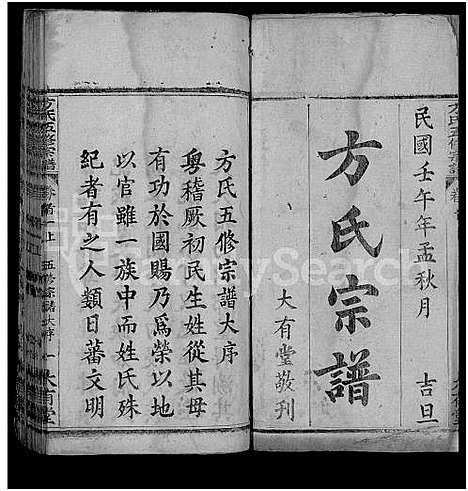 民國壬午年孟秋月 吉旦
方氏宗譜
大有堂敬刊
方氏五修宗譜大序
粵稽厥初民生姓從其母
有功於國賜乃爲榮以地
以官雖一族中而姓氏殊
紀者有之人類日蕃文明
方氏五修宗譜
卷首上 五修宗譜大序 一 大有堂
FamilySearch